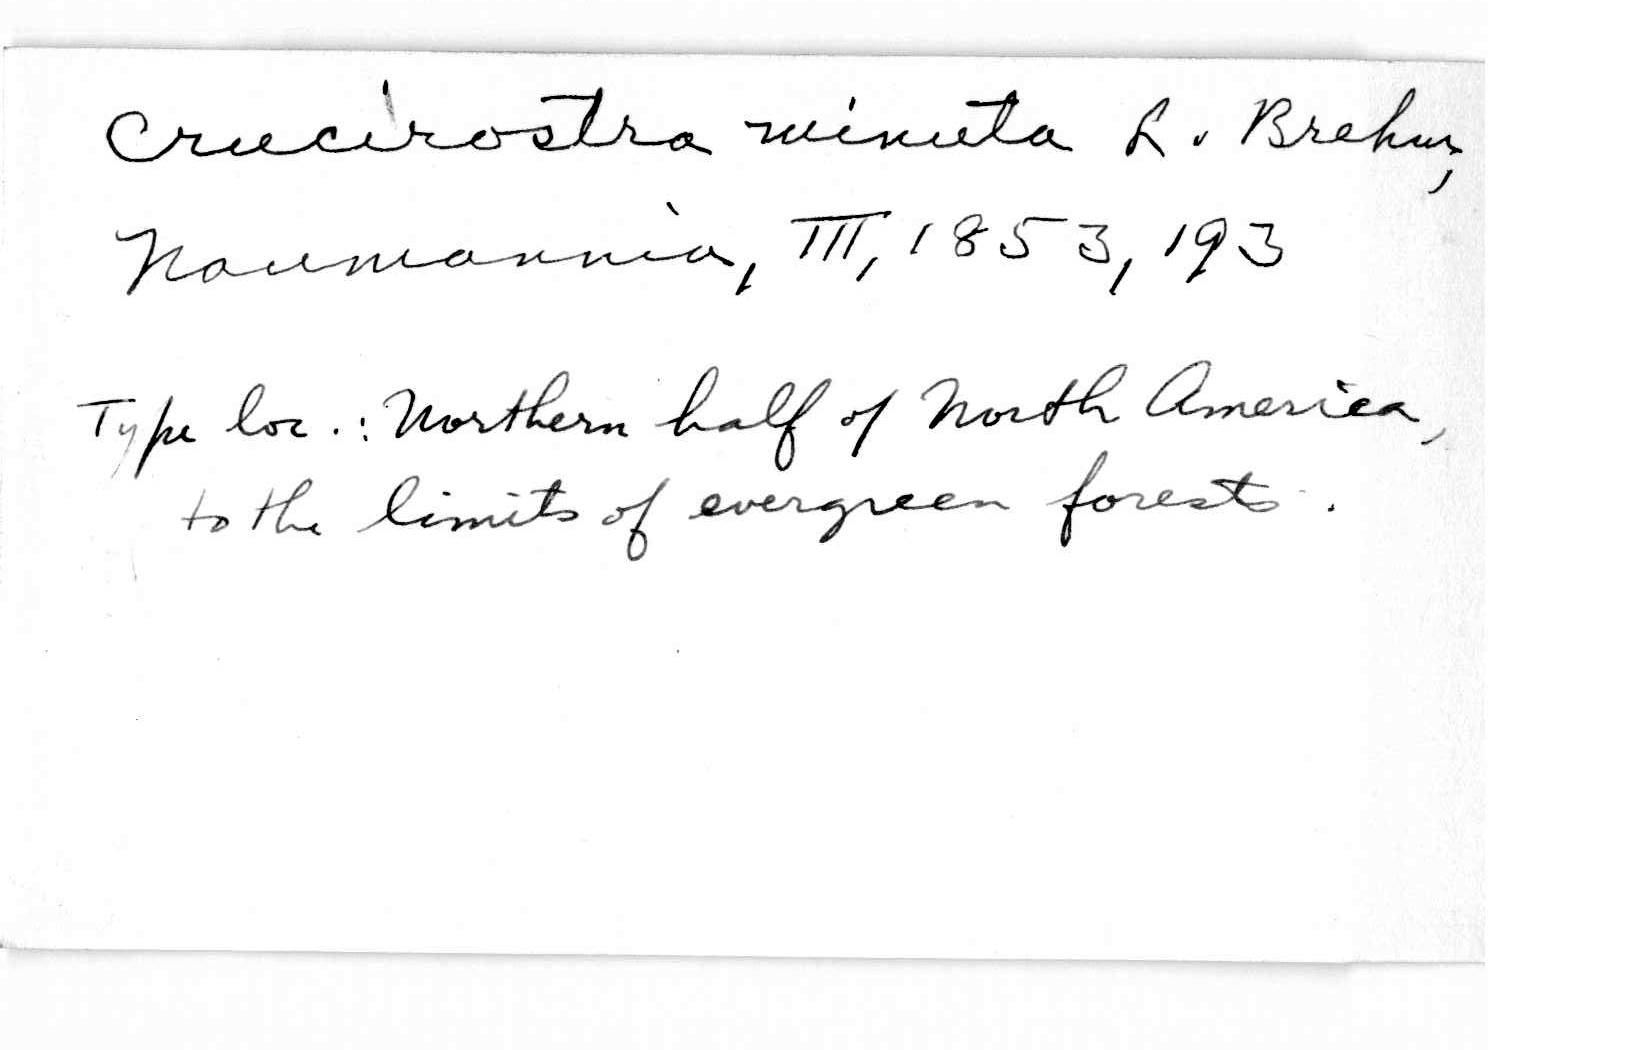 Crucirostra minuta L. Brehm,
Naumannia, III, 1853, 193
Type loc.: Northern half of North America,
to the limits of evergreen forests.